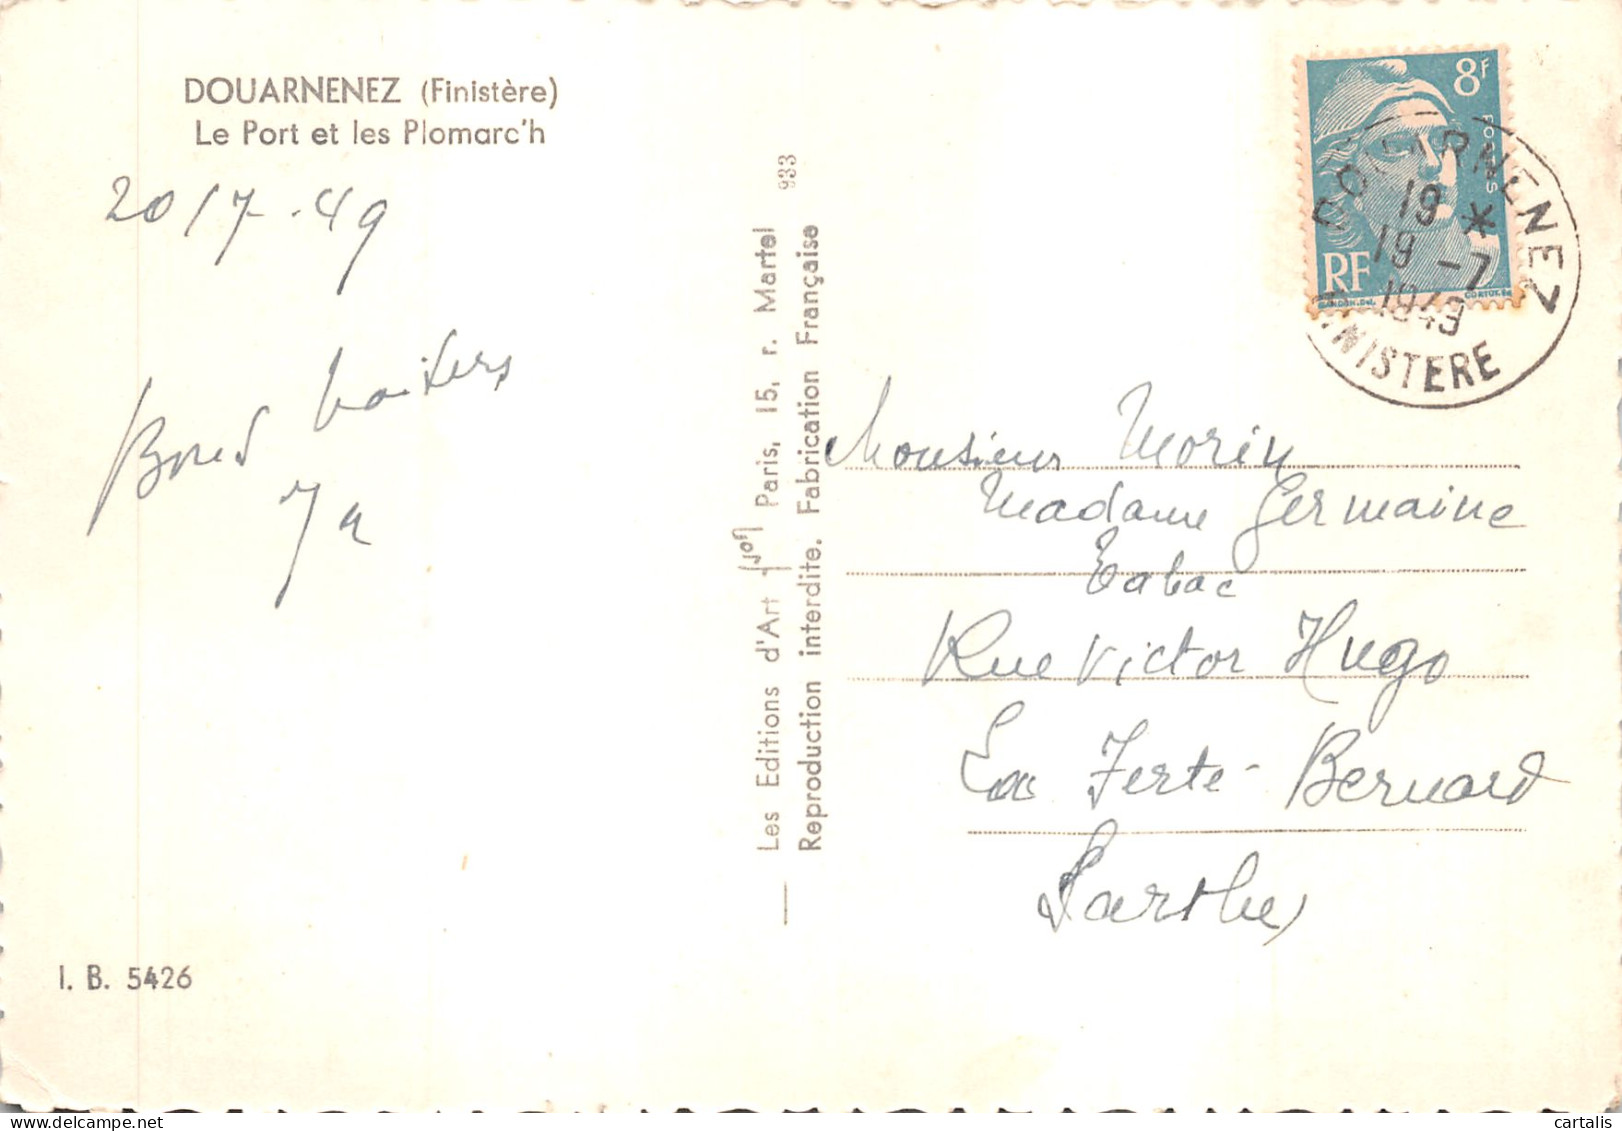 DOUARNENEZ (Finistère)
Le Port et les Plomarc'h
20/7-49
Bons baisers
I. B. 5426
Les Editions d'Art Yvon Paris, 15, r. Martel
Reproduction interdite. Fabrication Française
933
8F
POSTES
RF
GANDON.Del.
CORTOT.Sc
DOUARNENEZ
19 *
19 -7
1949
FINISTERE
Monsieur Morin
Madame Germaine
Tabac
Rue Victor Hugo
La Ferte-Bernard
Sarthe
cartalis